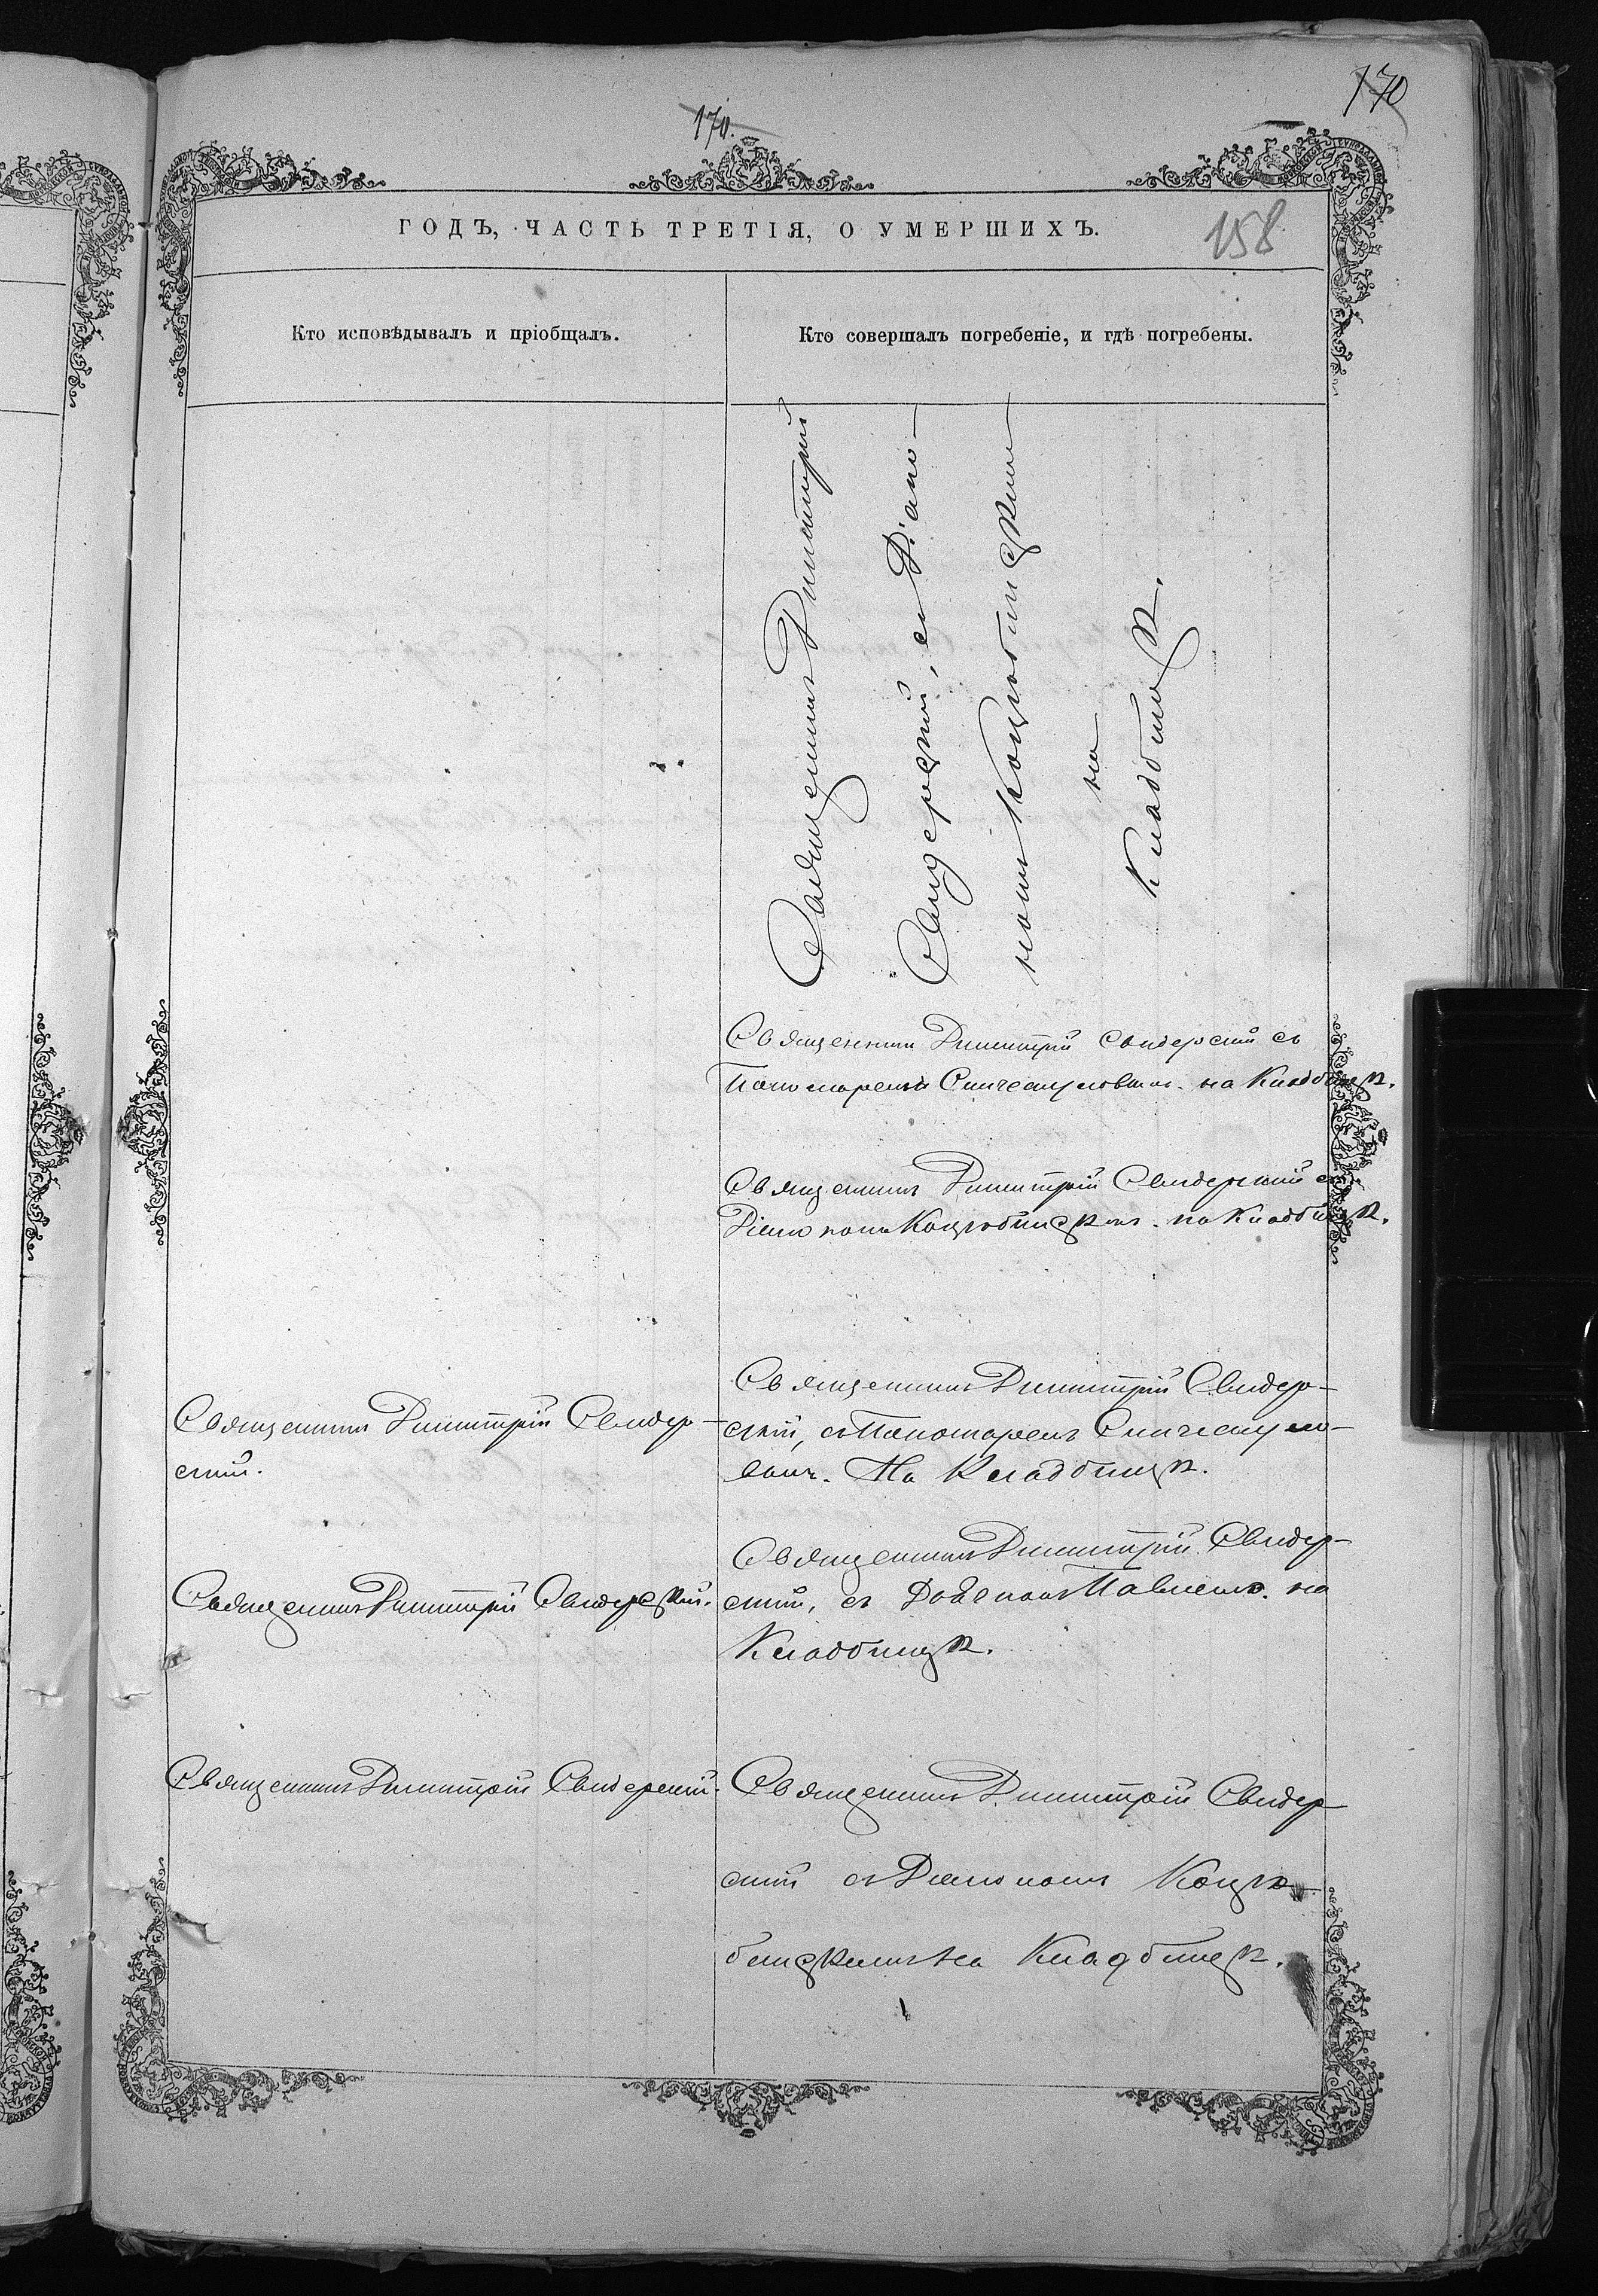 170
170.
ГОДЪ, ЧАСТЬ ТРЕТІЯ, О УМЕРШИХЪ.
158
Кто исповѣдывалъ и пріобщалъ.
Кто совершалъ погребеніе, и гдѣ погребены.
Священникъ Димитрій
Свидерскій, съ Діако-
номъ Коцюбинскимъ
на
Кладбищѣ.
Священникъ Димитрій Свидерскій съ
Пономаремъ на Кладбищѣ.
Священникъ Димитрій Свидерскій съ
Діакономъ Коцюбинскимъ. на Кладбищѣ.
Священникъ Димитрій Свидер-
скій.
Священникъ Димитрій Свидер-
скій, съ Пономаремъ
На Кладбищѣ.
Священникъ Димитрій Свидерскій.
Священникъ Димитрій Свидер-
скій, съ на
Кладбищѣ.
Священникъ Димитрій Свидерскій.
Священникъ Димитрій Свидер
скій съ Діакономъ Коцю-
бинскимъ на Кладбищѣ.